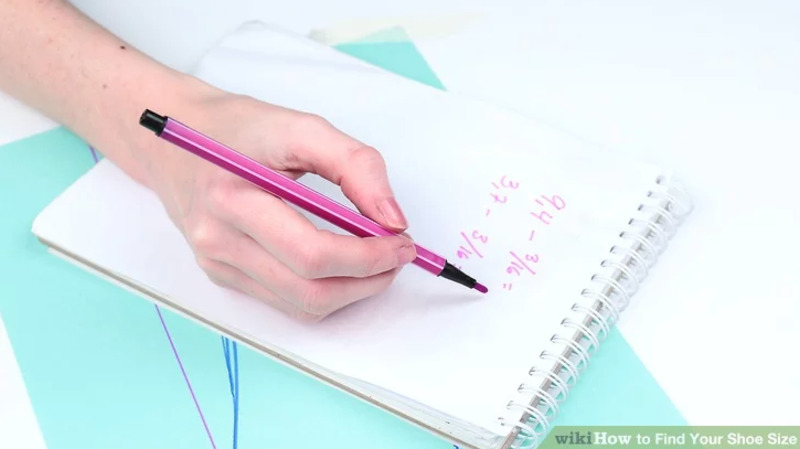 9,4 - 3/16 =
3,7 - 3/16 =
wikiHow to Find Your Shoe Size